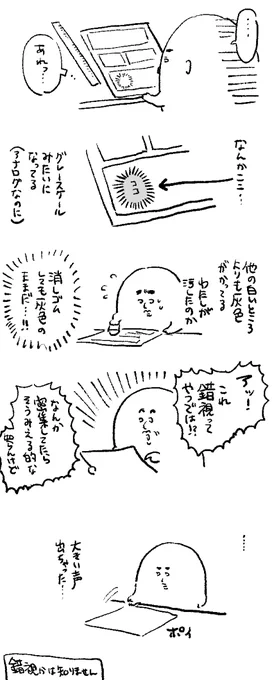 …
あれ？…
なんかここ…
ココ
グレースケール
みたいに
なってる
(アナログなのに)
他の白いところ
よりも灰色
がかってる
わたしが
汚したのか
消しゴム
しても灰色の
ままだ…!!
アッ！
これ
錯視って
やつでは!?
なんか
密集してたら
そうみえる的な
知らんけど
……
大きい声
出ちゃった…
ポイ
錯視かは知りません